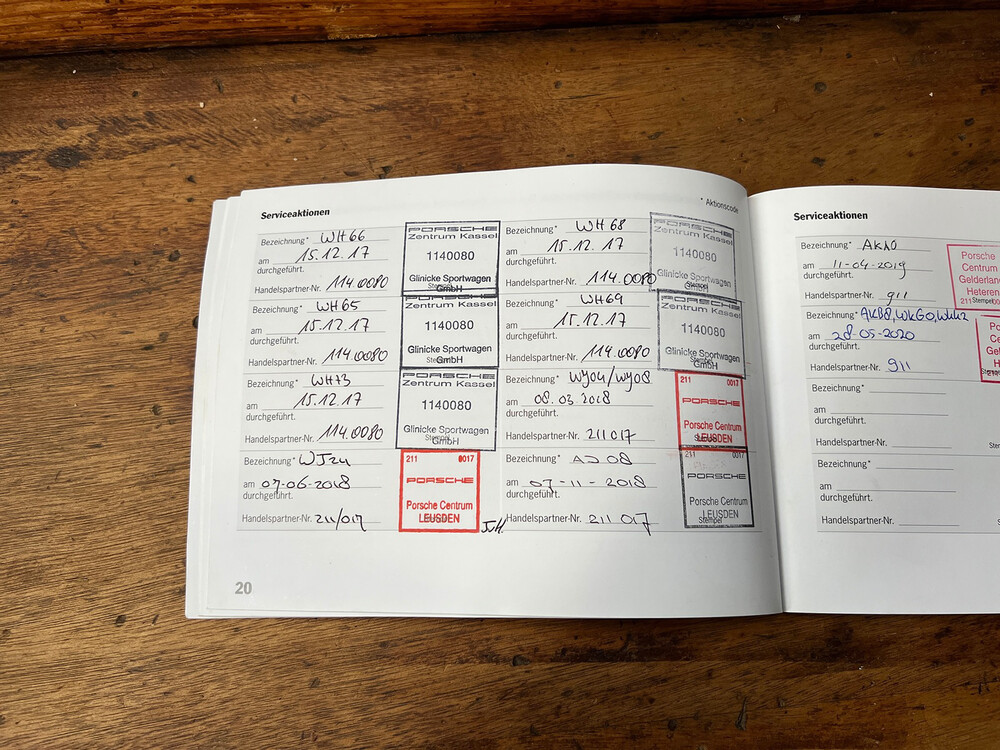 Serviceaktionen
* Aktionscode
Bezeichnung* WH66
am 15.12.17
durchgeführt.
Handelspartner-Nr. 114.0080
PORSCHE
Zentrum Kassel
1140080
Glinicke Sportwagen
GmbH
Stempel
Bezeichnung* WH68
am 15.12.17
durchgeführt.
Handelspartner-Nr. 114.0080
PORSCHE
Zentrum Kassel
1140080
Glinicke Sportwagen
GmbH
Stempel
Bezeichnung* WH65
am 15.12.17
durchgeführt.
Handelspartner-Nr. 114.0080
PORSCHE
Zentrum Kassel
1140080
Glinicke Sportwagen
GmbH
Stempel
Bezeichnung* WH69
am 15.12.17
durchgeführt.
Handelspartner-Nr. 114.0080
PORSCHE
Zentrum Kassel
1140080
Glinicke Sportwagen
GmbH
Stempel
Bezeichnung* WH73
am 15.12.17
durchgeführt.
Handelspartner-Nr. 114.0080
PORSCHE
Zentrum Kassel
1140080
Glinicke Sportwagen
GmbH
Stempel
Bezeichnung* WY04/WY08
am 08.03.2018
durchgeführt.
Handelspartner-Nr. 211017
211 0017
PORSCHE
Porsche Centrum
LEUSDEN
Stempel
Bezeichnung* WJ24
am 07-06-2018
durchgeführt.
Handelspartner-Nr. 211/017
211 0017
PORSCHE
Porsche Centrum
LEUSDEN
Stempel
Bezeichnung* AJ08
am 07-11-2018
durchgeführt.
Handelspartner-Nr. 211 017
211 0017
PORSCHE
Porsche Centrum
LEUSDEN
Stempel
20
Serviceaktionen
Bezeichnung* AKA0
am 11-04-2019
durchgeführt.
Handelspartner-Nr. 911
Porsche
Centrum
Gelderland
Heteren
211 Stempel
Bezeichnung* AKB8, WKG0, WKH2
am 28-05-2020
durchgeführt.
Handelspartner-Nr. 911
Bezeichnung*
am
durchgeführt.
Handelspartner-Nr.
Bezeichnung*
am
durchgeführt.
Handelspartner-Nr.